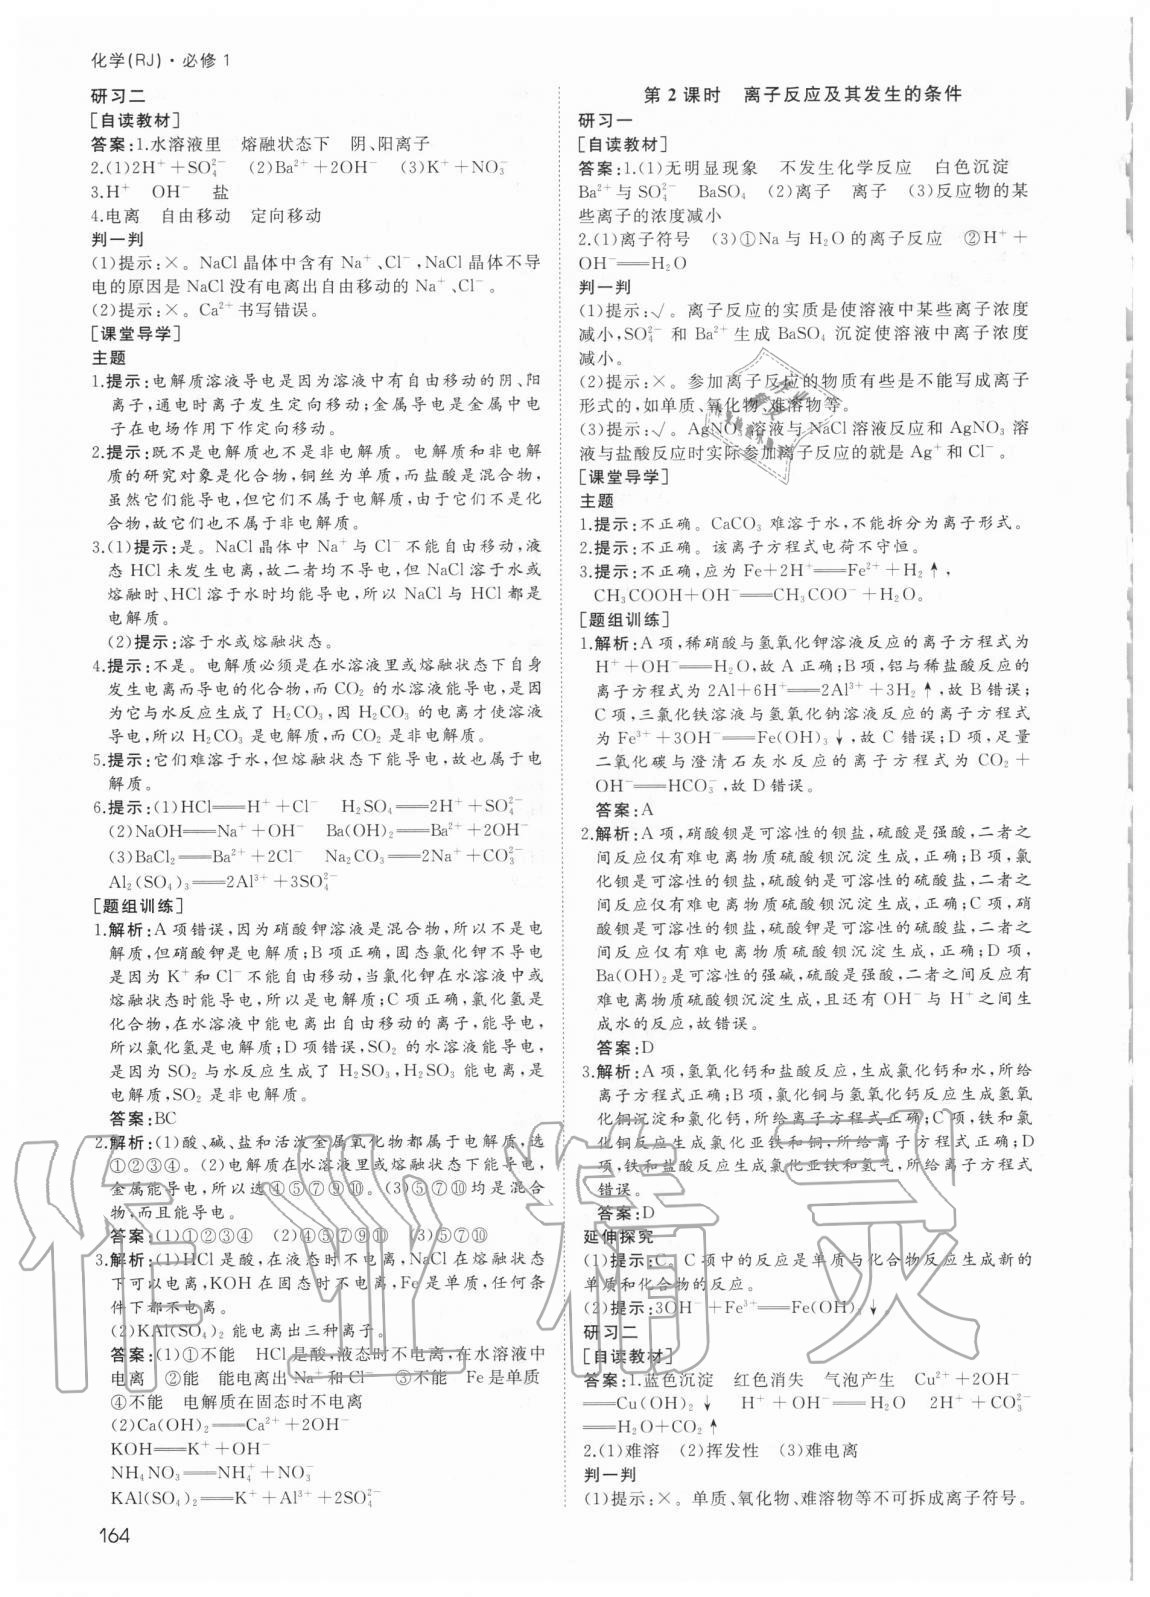 化学(RJ)·必修1
研习二
[自读教材]
答案:1.水溶液里 熔融状态下 阴、阳离子
2.(1)2H⁺+SO₄²⁻ (2)Ba²⁺+2OH⁻ (3)K⁺+NO₃⁻
3.H⁺ OH⁻ 盐
4.电离 自由移动 定向移动
判一判
(1)提示:×。NaCl晶体中含有Na⁺、Cl⁻,NaCl晶体不导
电的原因是NaCl没有电离出自由移动的Na⁺、Cl⁻。
(2)提示:×。Ca²⁺书写错误。
[课堂导学]
主题
1.提示:电解质溶液导电是因为溶液中有自由移动的阴、阳
离子,通电时离子发生定向移动;金属导电是金属中电
子在电场作用下作定向移动。
2.提示:既不是电解质也不是非电解质。电解质和非电解
质的研究对象是化合物,铜丝为单质,而盐酸是混合物,
虽然它们能导电,但它们不属于电解质,由于它们不是化
合物,故它们也不属于非电解质。
3.(1)提示:是。NaCl晶体中Na⁺与Cl⁻不能自由移动,液
态HCl未发生电离,故二者均不导电,但NaCl溶于水或
熔融时、HCl溶于水时均能导电,所以NaCl与HCl都是
电解质。
(2)提示:溶于水或熔融状态。
4.提示:不是。电解质必须是在水溶液里或熔融状态下自身
发生电离而导电的化合物,而CO₂的水溶液能导电,是因
为它与水反应生成了H₂CO₃,因H₂CO₃的电离才使溶液
导电,所以H₂CO₃是电解质,而CO₂是非电解质。
5.提示:它们难溶于水,但熔融状态下能导电,故也属于电
解质。
6.提示:(1)HCl══H⁺+Cl⁻ H₂SO₄══2H⁺+SO₄²⁻
(2)NaOH══Na⁺+OH⁻ Ba(OH)₂══Ba²⁺+2OH⁻
(3)BaCl₂══Ba²⁺+2Cl⁻ Na₂CO₃══2Na⁺+CO₃²⁻
Al₂(SO₄)₃══2Al³⁺+3SO₄²⁻
[题组训练]
1.解析:A项错误,因为硝酸钾溶液是混合物,所以不是电
解质,但硝酸钾是电解质;B项正确,固态氯化钾不导电
是因为K⁺和Cl⁻不能自由移动,当氯化钾在水溶液中或
熔融状态时能导电,所以是电解质;C项正确,氯化氢是
化合物,在水溶液中能电离出自由移动的离子,能导电,
所以氯化氢是电解质;D项错误,SO₂的水溶液能导电,
是因为SO₂与水反应生成了H₂SO₃,H₂SO₃能电离,是
电解质,SO₂是非电解质。
答案:BC
2.解析:(1)酸、碱、盐和活泼金属氧化物都属于电解质,选
①②③④。(2)电解质在水溶液里或熔融状态下能导电,
金属能导电,所以选④⑤⑦⑨⑩。(3)⑤⑦⑩均是混合
物,而且能导电。
答案:(1)①②③④ (2)④⑤⑦⑨⑩ (3)⑤⑦⑩
3.解析:(1)HCl是酸,在液态时不电离,NaCl在熔融状态
下可以电离,KOH在固态时不电离,Fe是单质,任何条
件下都不电离。
(2)KAl(SO₄)₂能电离出三种离子。
答案:(1)①不能 HCl是酸,液态时不电离,在水溶液中
电离 ②能 能电离出Na⁺和Cl⁻ ③不能 Fe是单质
④不能 电解质在固态时不电离
(2)Ca(OH)₂══Ca²⁺+2OH⁻
KOH══K⁺+OH⁻
NH₄NO₃══NH₄⁺+NO₃⁻
KAl(SO₄)₂══K⁺+Al³⁺+2SO₄²⁻
164
第2课时 离子反应及其发生的条件
研习一
[自读教材]
答案:1.(1)无明显现象 不发生化学反应 白色沉淀
Ba²⁺与SO₄²⁻ BaSO₄ (2)离子 离子 (3)反应物的某
些离子的浓度减小
2.(1)离子符号 (3)①Na与H₂O的离子反应 ②H⁺+
OH⁻══H₂O
判一判
(1)提示:√。离子反应的实质是使溶液中某些离子浓度
减小,SO₄²⁻和Ba²⁺生成BaSO₄沉淀使溶液中离子浓度
减小。
(2)提示:×。参加离子反应的物质有些是不能写成离子
形式的,如单质、氧化物、难溶物等。
(3)提示:√。AgNO₃溶液与NaCl溶液反应和AgNO₃溶
液与盐酸反应时实际参加离子反应的就是Ag⁺和Cl⁻。
[课堂导学]
主题
1.提示:不正确。CaCO₃难溶于水,不能拆分为离子形式。
2.提示:不正确。该离子方程式电荷不守恒。
3.提示:不正确,应为Fe+2H⁺══Fe²⁺+H₂↑,
CH₃COOH+OH⁻══CH₃COO⁻+H₂O。
[题组训练]
1.解析:A项,稀硝酸与氢氧化钾溶液反应的离子方程式为
H⁺+OH⁻══H₂O,故A正确;B项,铝与稀盐酸反应的
离子方程式为2Al+6H⁺══2Al³⁺+3H₂↑,故B错误;
C项,三氯化铁溶液与氢氧化钠溶液反应的离子方程式
为Fe³⁺+3OH⁻══Fe(OH)₃↓,故C错误;D项,足量
二氧化碳与澄清石灰水反应的离子方程式为CO₂+
OH⁻══HCO₃⁻,故D错误。
答案:A
2.解析:A项,硝酸钡是可溶性的钡盐,硫酸是强酸,二者之
间反应仅有难电离物质硫酸钡沉淀生成,正确;B项,氯
化钡是可溶性的钡盐,硫酸钠是可溶性的硫酸盐,二者之
间反应仅有难电离物质硫酸钡沉淀生成,正确;C项,硝
酸钡是可溶性的钡盐,硫酸钾是可溶性的硫酸盐,二者之
间反应仅有难电离物质硫酸钡沉淀生成,正确;D项,
Ba(OH)₂是可溶性的强碱,硫酸是强酸,二者之间反应有
难电离物质硫酸钡沉淀生成,且还有OH⁻与H⁺之间生
成水的反应,故错误。
答案:D
3.解析:A项,氢氧化钙和盐酸反应,生成氯化钙和水,所给
离子方程式正确;B项,氯化铜与氢氧化钙反应生成氢氧
化铜沉淀和氯化钙,所给离子方程式正确;C项,铁和氯
化铜反应生成氯化亚铁和铜,所给离子方程式正确;D
项,铁和盐酸反应生成氯化亚铁和氢气,所给离子方程式
错误。
答案:D
延伸探究
(1)提示:C。C项中的反应是单质与化合物反应生成新的
单质和化合物的反应。
(2)提示:3OH⁻+Fe³⁺══Fe(OH)₃↓。
研习二
[自读教材]
答案:1.蓝色沉淀 红色消失 气泡产生 Cu²⁺+2OH⁻
══Cu(OH)₂↓ H⁺+OH⁻══H₂O 2H⁺+CO₃²⁻
══H₂O+CO₂↑
2.(1)难溶 (2)挥发性 (3)难电离
判一判
(1)提示:×。单质、氧化物、难溶物等不可拆成离子符号。
作业精灵